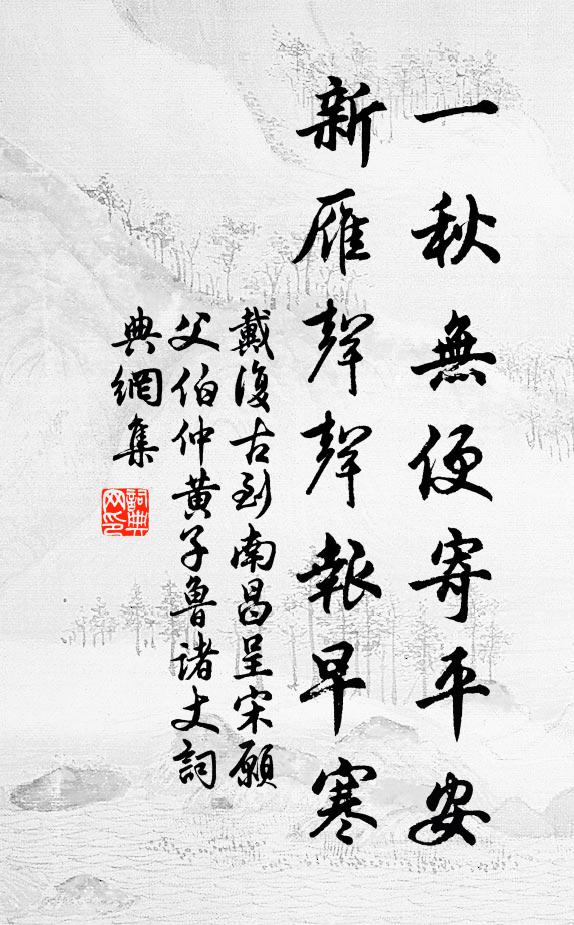 一秋無便寄平安
新雁聲聲報早寒
戴復古到南昌呈宋願
父伯仲黃子魯諸丈詞
典網集
詞典
网印